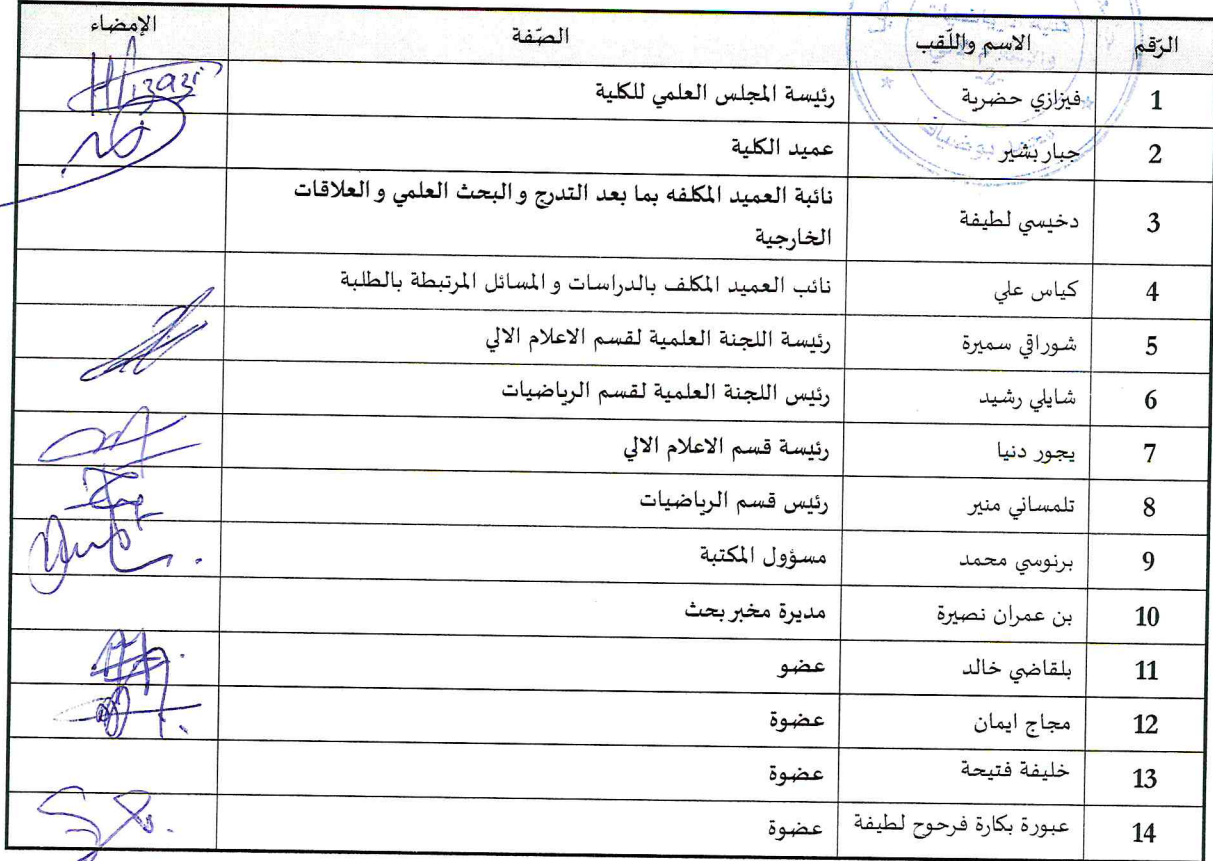 الرّقم الاسم واللّقب الصّفة الإمضاء
1 فيزازي حضرية رئيسة المجلس العلمي للكلية
2 جبار بشير عميد الكلية
3 دخيسي لطيفة نائبة العميد المكلفه بما بعد التدرج و البحث العلمي و العلاقات
الخارجية
4 كياس علي نائب العميد المكلف بالدراسات و المسائل المرتبطة بالطلبة
5 شوراقي سميرة رئيسة اللجنة العلمية لقسم الاعلام الالي
6 شايلي رشيد رئيس اللجنة العلمية لقسم الرياضيات
7 يجور دنيا رئيسة قسم الاعلام الالي
8 تلمساني منير رئيس قسم الرياضيات
9 برنوسي محمد مسؤول المكتبة
10 بن عمران نصيرة مديرة مخبر بحث
11 بلقاضي خالد عضو
12 مجاج ايمان عضوة
13 خليفة فتيحة عضوة
14 عبورة بكارة فرحوح لطيفة عضوة